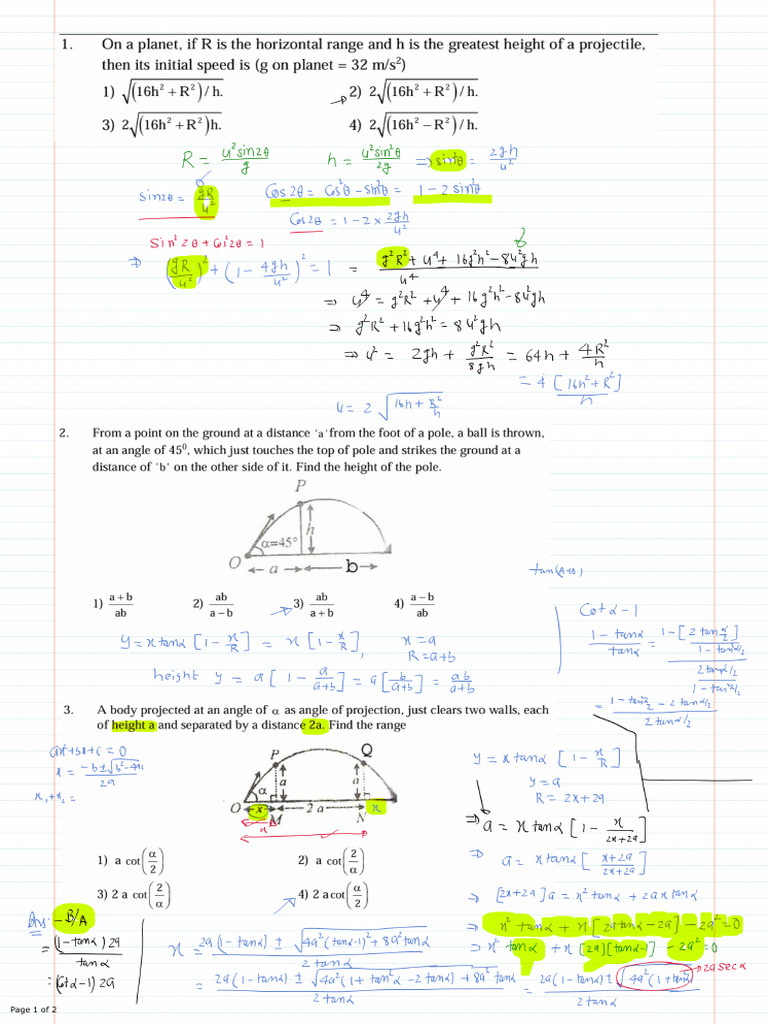 1. On a planet, if R is the horizontal range and h is the greatest height of a projectile,
then its initial speed is (g on planet = 32 m/s²)
1) √(16h² + R²)/h.
2) 2√(16h² + R²)/h.
3) 2√(16h² + R²)h.
4) 2√(16h² − R²)/h.
R = u²sin2θ/g h = u²sin²θ/2g ⇒ sin²θ = 2gh/u²
sin2θ = gR/u² Cos2θ = Cos²θ − sin²θ = 1 − 2 sin²θ
Cos2θ = 1 − 2 × 2gh/u²
Sin²2θ + Cos²2θ = 1
⇒ (gR/u²)² + (1 − 4gh/u²)² = 1 = g²R² + u⁴ + 16g²h² − 8u²gh / u⁴
⇒ u⁴ = g²R² + u⁴ + 16g²h² − 8u²gh
⇒ g²R² + 16g²h² = 8u²gh
⇒ u² = 2gh + g²R²/8gh = 64h + 4R²/h
= 4[16h² + R²]/h
u = 2√16h + R²/h
2. From a point on the ground at a distance 'a' from the foot of a pole, a ball is thrown,
at an angle of 45⁰, which just touches the top of pole and strikes the ground at a
distance of 'b' on the other side of it. Find the height of the pole.
P
h
α=45°
O
a b
tan(A+B)
1) a + b / ab 2) ab / a − b 3) ab / a + b 4) a − b / ab
y = x tanα [1 − x/R] = x[1 − x/R], x = a
R = a+b
height y = a[1 − a/a+b] = a[b/a+b] = ab/a+b
Cotα − 1
1 − tanα / tanα = 1 − [2 tanα/2 / 1 − tan²α/2] / 2tanα/2 / 1 − tan²α/2
= 1 − tan²α/2 − 2 tanα/2 / 2 tanα/2
3. A body projected at an angle of α as angle of projection, just clears two walls, each
of height a and separated by a distance 2a. Find the range
ax² + bx + c = 0
x = −b ± √b² − 4ac / 2a
x₁ + x₂ =
P Q
a a
α
O x M 2a N x
x
y = x tanα [1 − x/R]
y = a
R = 2x + 2a
⇒ a = x tanα [1 − x/2x+2a]
⇒ a = x tanα [x+2a/2x+2a]
⇒ [2x+2a]a = x² tanα + 2ax tanα
⇒ x² tanα + x[2a tanα − 2a] − 2a² = 0
⇒ x² tanα + x[2a)[tanα−1] − 2a² = 0
1) a cot(α/2)
2) a cot(2/α)
3) 2 a cot(2/α)
4) 2 a cot(α/2)
Ans: − B/A
= (1−tanα)2a / tanα
= (Cotα − 1)2a
x = 2a(1 − tanα) ± √4a²(tanα−1)² + 8a²tanα / 2 tanα
= 2a(1 − tanα) ± √4a²(1 + tan²α − 2 tanα) + 8a² tanα / 2 tanα = 2a(1 − tanα) ± √4a²(1 + tan²α / 2 tanα
→ 2a secα
Page 1 of 2